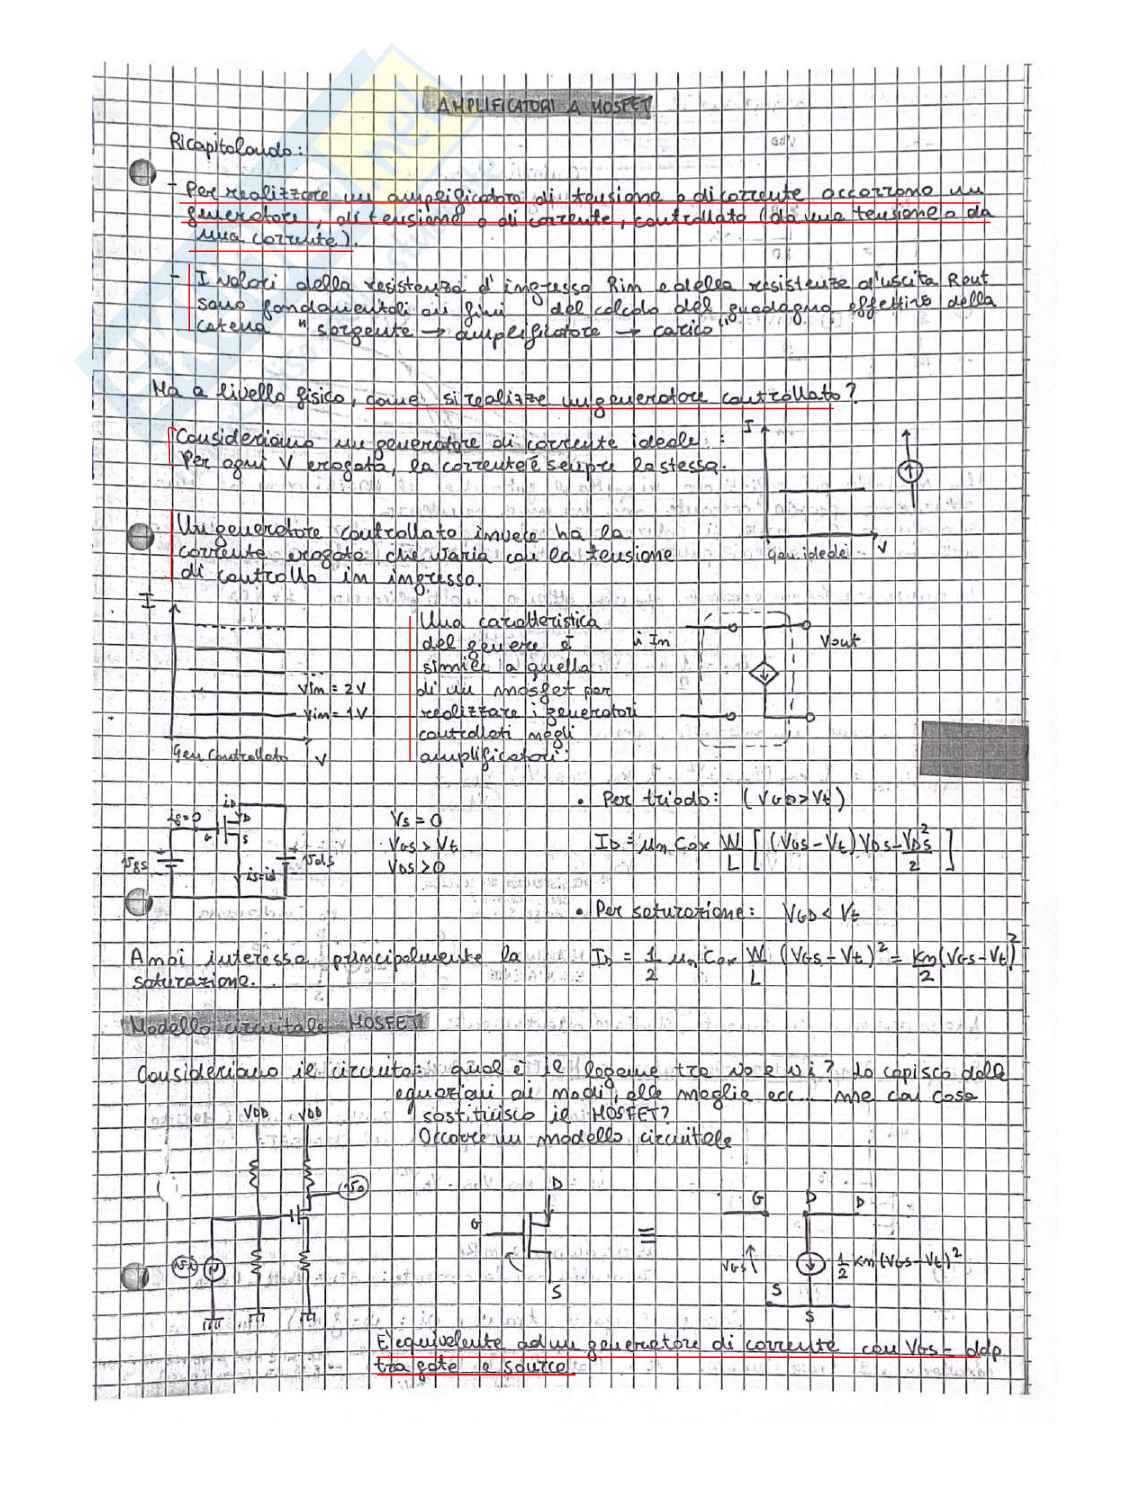 AMPLIFICATORI A MOSFET
Ricapitolando:
- Per realizzare un amplificatore di tensione o di corrente occorrono un
generatore, di tensione o di corrente, controllato (da una tensione o da
una corrente).
- I valori della resistenza d'ingresso Rin e della resistenza d'uscita Rout
sono fondamentali ai fini del calcolo del guadagno effettivo della
catena "sorgente → amplificatore → carico"
Ma a livello fisico, come si realizza un generatore controllato?
Consideriamo un generatore di corrente ideale:
Per ogni V erogata, la corrente è sempre la stessa.
I
Gen. ideale
V
Un generatore controllato invece ha la
corrente erogata che varia con la tensione
di controllo in ingresso.
I
Vin = 2V
Vin = 1V
Gen Controllato
V
Una caratteristica
del genere è
simile a quella
di un mosfet per
realizzare i generatori
controllati negli
amplificatori:
In
Vout
iD
ig=0
D
G
S
vgs
vds
is=id
Vs = 0
VGS > Vt
VDS > 0
• Per triodo: (VGD > Vt)
ID = μn Cox W/L [(VGS - Vt) VDS - VDS²/2]
• Per saturazione: VGD < Vt
Ampi interessa principalmente la
saturazione.
ID = 1/2 μn Cox W/L (VGS - Vt)² = Kn/2 (VGS - Vt)²
Modello circuitale MOSFET
Consideriamo il circuito: qual è il legame tra vo e vi? Lo capisco dalle
equazioni ai nodi, alle maglie ecc... ma con cosa
sostituisco il MOSFET?
Occorre un modello circuitale
VDD
VDD
vo
vi
D
G
S
≡
G
D
D
VGS
1/2 Kn (VGS - Vt)²
S
S
È equivalente ad un generatore di corrente con VGS = ddp
tra gate e source